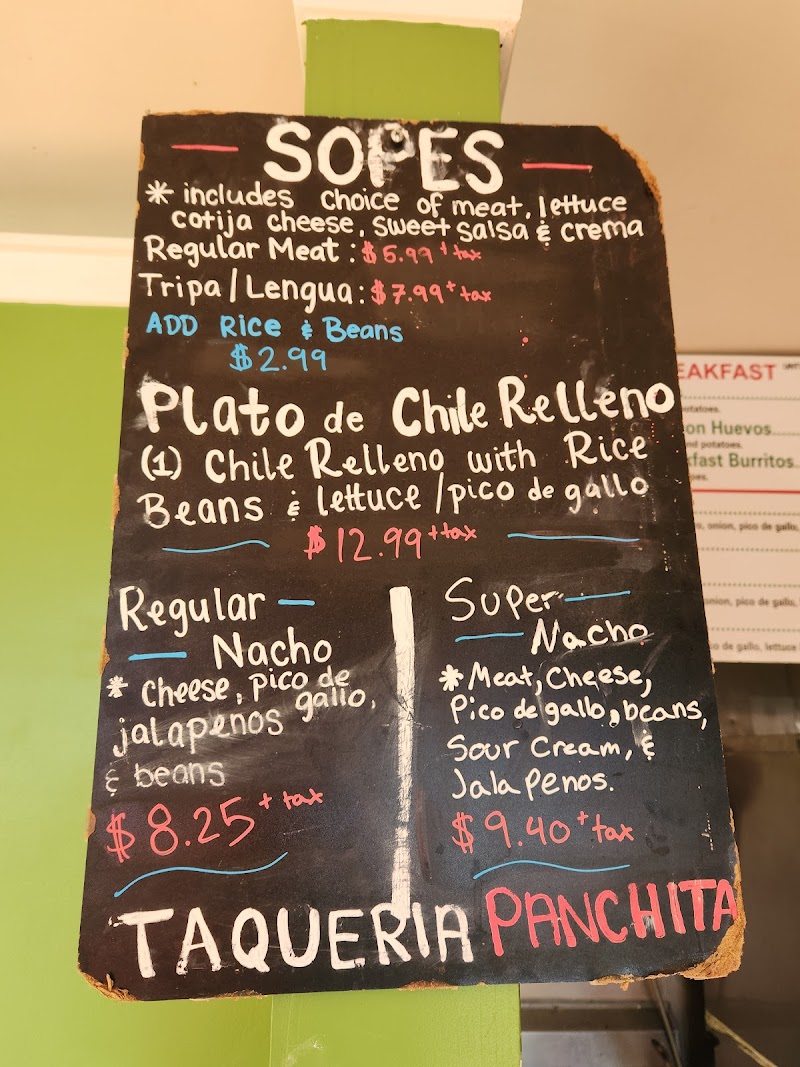 SOPES
* includes choice of meat, lettuce
cotija cheese, sweet salsa & crema
Regular Meat: $5.99 + tax
Tripa/Lengua: $7.99 + tax
ADD Rice & Beans
$2.99
Plato de Chile Relleno
(1) Chile Relleno with Rice
Beans & lettuce/pico de gallo
$12.99 + tax
Regular
Nacho
* Cheese, pico de
gallo,
jalapenos
& beans
$8.25 + tax
Super
Nacho
* Meat, Cheese,
Pico de gallo, beans,
Sour Cream, &
Jalapenos.
$9.40 + tax
TAQUERIA PANCHITA
EAKFAST
potatoes.
on Huevos
and potatoes.
fast Burritos
onion, pico de gallo,
onion, pico de gallo,
de gallo, lettuce